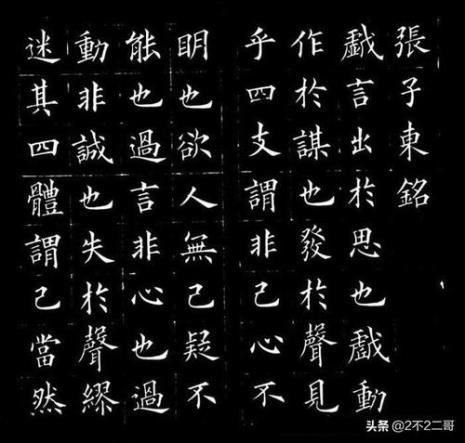 張子東銘
戲言出於思也戲動
作於謀也發於聲見
乎四支謂非己心不
明也欲人無己疑不
能也過言非心也過
動非誠也失於聲繆
迷其四體謂己當然
头条 @2不2二哥